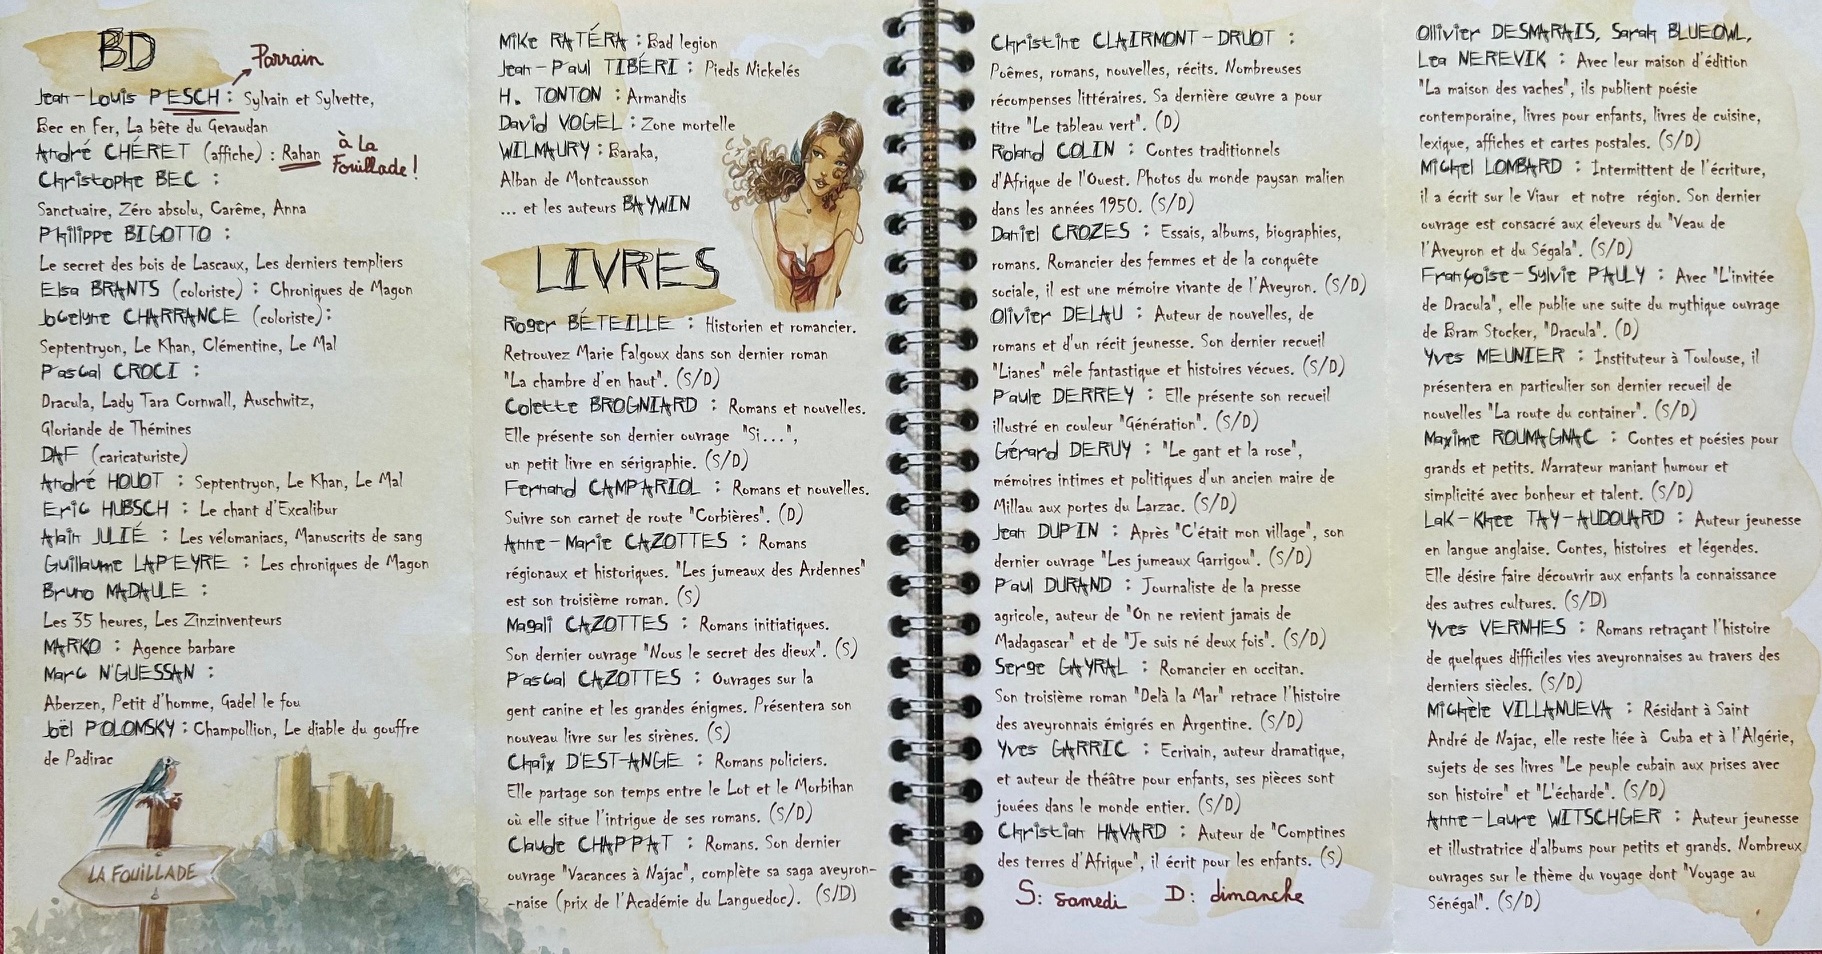 BD
Parrain
Jean-Louis PESCH : Sylvain et Sylvette,
Bec en Fer, La bête du Gevaudan
André CHÉRET (affiche) : Rahan
à La
Fouillade !
Christophe BEC :
Sanctuaire, Zéro absolu, Carême, Anna
Philippe BIGOTTO :
Le secret des bois de Lascaux, Les derniers templiers
Elsa BRANTS (coloriste) : Chroniques de Magon
Jocelyne CHARRANCE (coloriste):
Septentryon, Le Khan, Clémentine, Le Mal
Pascal CROCI :
Dracula, Lady Tara Cornwall, Auschwitz,
Gloriande de Thémines
DAF (caricaturiste)
André HOUOT : Septentryon, Le Khan, Le Mal
Eric HUBSCH : Le chant d'Excalibur
Alain JULIÉ : Les vélomaniacs, Manuscrits de sang
Guillaume LAPEYRE : Les chroniques de Magon
Bruno MADAULE :
Les 35 heures, Les Zinzinventeurs
MARKO : Agence barbare
Marc N'GUESSAN :
Aberzen, Petit d'homme, Gadel le fou
Joël POLOMSKY : Champollion, Le diable du gouffre
de Padirac
LA FOUILLADE
Mike RATÉRA : Bad legion
Jean-Paul TIBÉRI : Pieds Nickelés
H. TONTON : Armandis
David VOGEL : Zone mortelle
WILMAURY : Baraka,
Alban de Montcausson
... et les auteurs BAYWIN
LIVRES
Roger BÉTEILLE : Historien et romancier.
Retrouvez Marie Falgoux dans son dernier roman
"La chambre d'en haut". (S/D)
Colette BROGNIARD : Romans et nouvelles.
Elle présente son dernier ouvrage "Si...",
un petit livre en sérigraphie. (S/D)
Fernand CAMPARIOL : Romans et nouvelles.
Suivre son carnet de route "Corbières". (D)
Anne-Marie CAZOTTES : Romans
régionaux et historiques. "Les jumeaux des Ardennes"
est son troisième roman. (S)
Magali CAZOTTES : Romans initiatiques.
Son dernier ouvrage "Nous le secret des dieux". (S)
Pascal CAZOTTES : Ouvrages sur la
gent canine et les grandes énigmes. Présentera son
nouveau livre sur les sirènes. (S)
Chaix D'EST-ANGE : Romans policiers.
Elle partage son temps entre le Lot et le Morbihan
où elle situe l'intrigue de ses romans. (S/D)
Claude CHAPPAT : Romans. Son dernier
ouvrage "Vacances à Najac", complète sa saga aveyron-
-naise (prix de l'Académie du Languedoc). (S/D)
Christine CLAIRMONT-DRUOT :
Poêmes, romans, nouvelles, récits. Nombreuses
récompenses littéraires. Sa dernière œuvre a pour
titre "Le tableau vert". (D)
Roland COLIN : Contes traditionnels
d'Afrique de l'Ouest. Photos du monde paysan malien
dans les années 1950. (S/D)
Daniel CROZES : Essais, albums, biographies,
romans. Romancier des femmes et de la conquête
sociale, il est une mémoire vivante de l'Aveyron. (S/D)
Olivier DELAU : Auteur de nouvelles, de
romans et d'un récit jeunesse. Son dernier recueil
"Lianes" mêle fantastique et histoires vécues. (S/D)
Paule DERREY : Elle présente son recueil
illustré en couleur "Génération". (S/D)
Gérard DERUY : "Le gant et la rose",
mémoires intimes et politiques d'un ancien maire de
Millau aux portes du Larzac. (S/D)
Jean DUPIN : Après "C'était mon village", son
dernier ouvrage "Les jumeaux Garrigou". (S/D)
Paul DURAND : Journaliste de la presse
agricole, auteur de "On ne revient jamais de
Madagascar" et de "Je suis né deux fois". (S/D)
Serge GAYRAL : Romancier en occitan.
Son troisième roman "Delà la Mar" retrace l'histoire
des aveyronnais émigrés en Argentine. (S/D)
Yves GARRIC : Ecrivain, auteur dramatique,
et auteur de théâtre pour enfants, ses pièces sont
jouées dans le monde entier. (S/D)
Christian HAVARD : Auteur de "Comptines
des terres d'Afrique", il écrit pour les enfants. (S)
S: samedi D: dimanche
Ollivier DESMARAIS, Sarah BLUEOWL,
Lea NEREVIK : Avec leur maison d'édition
"La maison des vaches", ils publient poésie
contemporaine, livres pour enfants, livres de cuisine,
lexique, affiches et cartes postales. (S/D)
Michel LOMBARD : Intermittent de l'écriture,
il a écrit sur le Viaur et notre région. Son dernier
ouvrage est consacré aux éleveurs du "Veau de
l'Aveyron et du Ségala". (S/D)
Françoise-Sylvie PAULY : Avec "L'invitée
de Dracula", elle publie une suite du mythique ouvrage
de Bram Stocker, "Dracula". (D)
Yves MEUNIER : Instituteur à Toulouse, il
présentera en particulier son dernier recueil de
nouvelles "La route du container". (S/D)
Maxime ROUMAGNAC : Contes et poésies pour
grands et petits. Narrateur maniant humour et
simplicité avec bonheur et talent. (S/D)
Lak-Khee TAY-AUDOUARD : Auteur jeunesse
en langue anglaise. Contes, histoires et légendes.
Elle désire faire découvrir aux enfants la connaissance
des autres cultures. (S/D)
Yves VERNHES : Romans retraçant l'histoire
de quelques difficiles vies aveyronnaises au travers des
derniers siècles. (S/D)
Michèle VILLANUEVA : Résidant à Saint
André de Najac, elle reste liée à Cuba et à l'Algérie,
sujets de ses livres "Le peuple cubain aux prises avec
son histoire" et "L'écharde". (S/D)
Anne-Laure WITSCHGER : Auteur jeunesse
et illustratrice d'albums pour petits et grands. Nombreux
ouvrages sur le thème du voyage dont "Voyage au
Sénégal". (S/D)